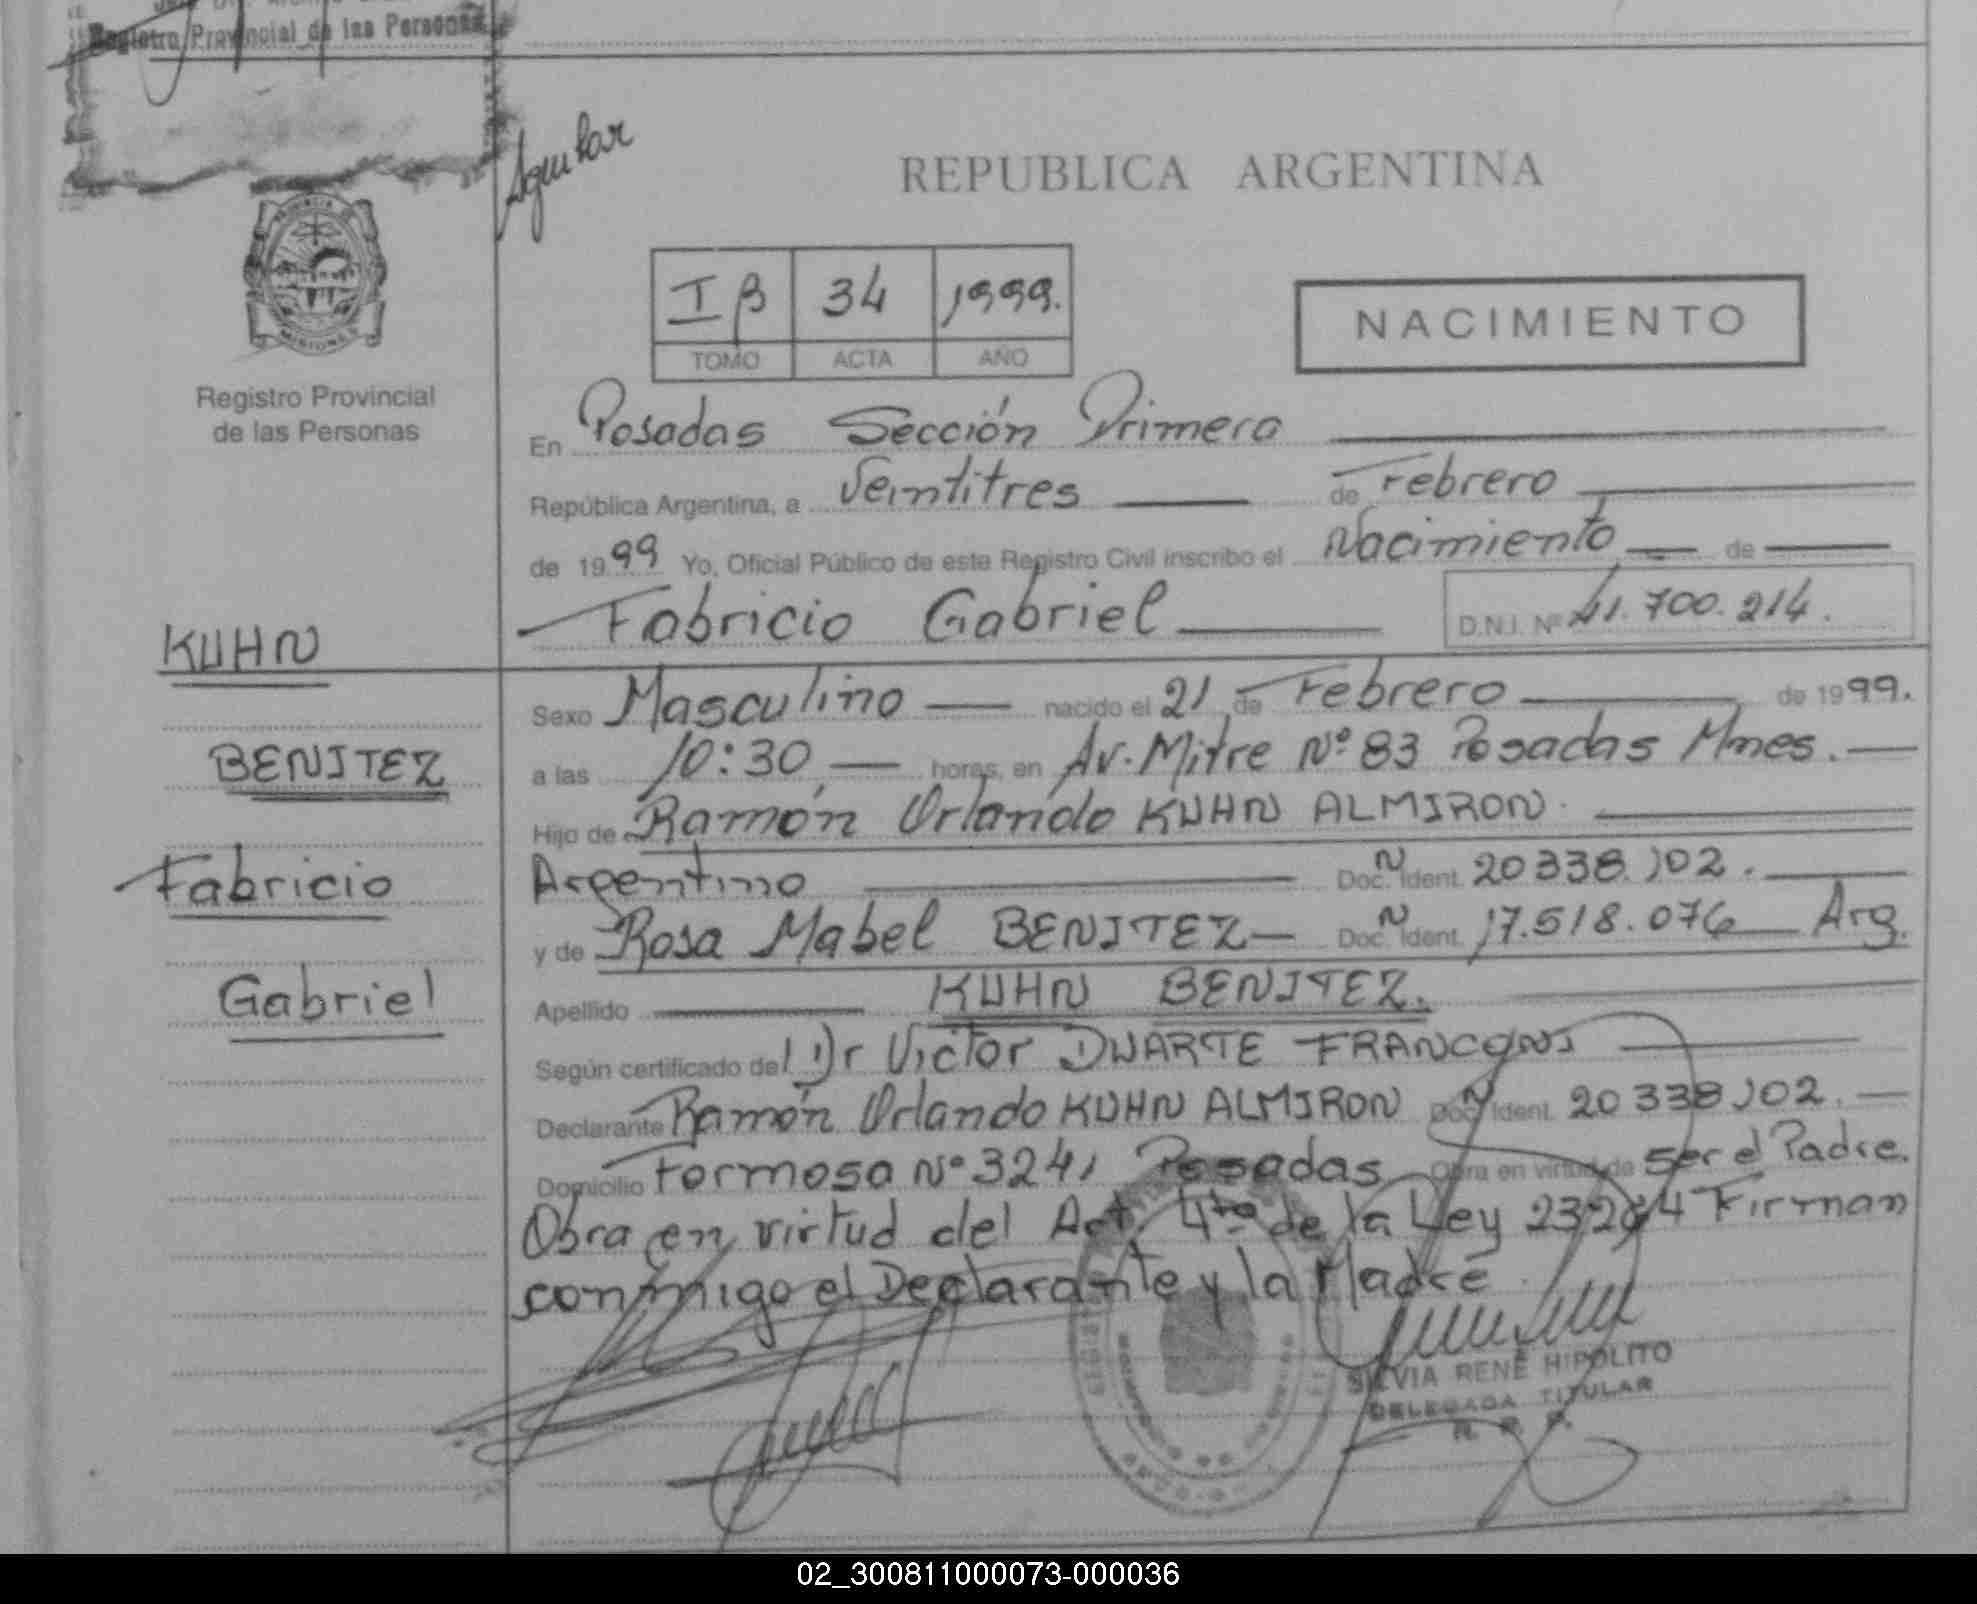 Registro Provincial de las Personas
Aguilar
REPUBLICA ARGENTINA
PROVINCIA DE
MISIONES
I β 34 1999.
TOMO ACTA AÑO
NACIMIENTO
Registro Provincial
de las Personas
En Posadas Sección Primera
República Argentina, a Veintitres de Febrero
de 1999 Yo, Oficial Público de este Registro Civil inscribo el Nacimiento de
Fabricio Gabriel D.N.I. Nº 41.700.214.
KUHN
BENITEZ
Fabricio
Gabriel
Sexo Masculino nacido el 21 de Febrero de 1999.
a las 10:30 horas, en Av. Mitre Nº 83 Posadas Mnes.
Hijo de Ramón Orlando KUHN ALMIRON
Argentino Doc. N Ident. 20 338.102.
y de Rosa Mabel BENITEZ Doc. N Ident. 17.518.076 Arg.
Apellido KUHN BENITEZ.
Según certificado del Dr Victor DUARTE FRANCONI
Declarante Ramón Orlando KUHN ALMIRON Doc. N Ident. 20 338102.
Domicilio Formosa Nº 3241 Posadas Obra en virtud de ser el Padre.
Obra en virtud del Art. 4to de la Ley 23264 Firman
conmigo el Declarante y la Madre
SILVIA RENE HIPOLITO
DELEGADA TITULAR
R. P. P.
02_300811000073-000036